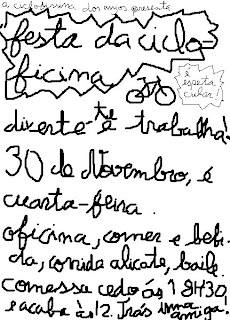 a ciclooficina dos anjos apresenta
festa da ciclo
ficina
é
espeta
cular!
diverte-te e trabalha!
30 de Novembro, é
cuarta-feira.
oficina, comer e bebi-
da, comida alicate, baile.
comessa cedo ás 18H30
e acaba ás 12. Trás uma amiga!